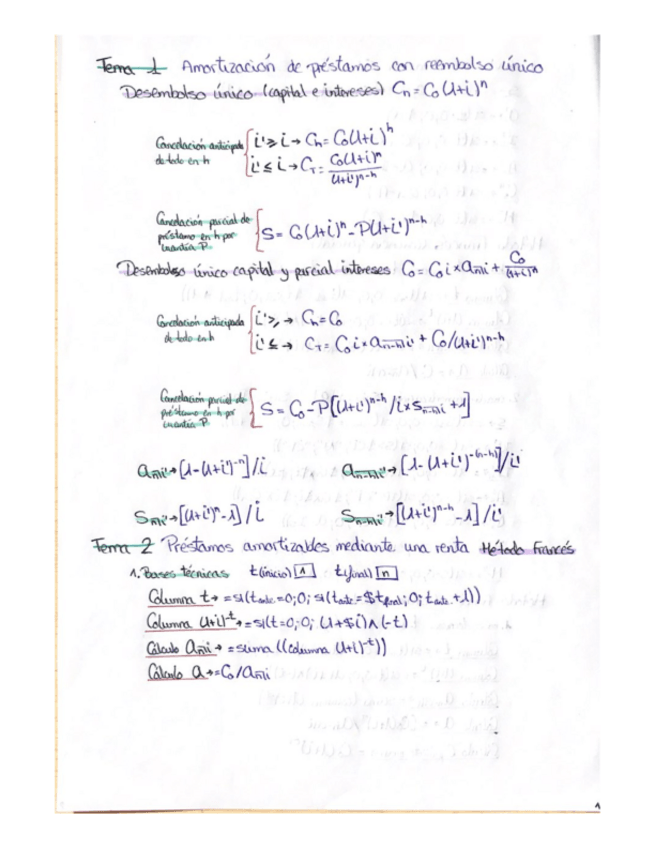 Tema 1 Amortización de préstamos con reembolso único
Desembolso único (capital e intereses) Cn = C0(1+i)^n
Cancelación anticipada de todo en h { i' ≥ i → Ch = C0(1+i)^h
i' ≤ i → CT = C0(1+i)^n / (1+i')^n-h
Cancelación parcial de préstamo en h por cuantía P { S = C0(1+i)^n - P(1+i')^n-h
Desembolso único capital y parcial intereses C0 = C0 i × an¬i + C0/(1+i)^n
Cancelación anticipada de todo en h { i' ≥ → Ch = C0
i' ≤ → CT = C0 i × an-h¬i' + C0/(1+i')^n-h
Cancelación parcial de préstamo en h por cuantía P { S = C0 - P[(1+i')^n-h / i × Sn-h¬i + 1]
an¬i' → [1-(1+i')^-n]/i
an-h¬i' → [1-(1+i')^-(n-h)]/i'
Sn¬i' → [(1+i')^n - 1]/i
Sn-h¬i' → [(1+i')^n-h - 1]/i'
Tema 2 Préstamos amortizables mediante una renta Método Francés
1. Bases técnicas t(inicio) 1 t(final) n
Columna t → =si(tante=0;0; si(tante=$tfinal;0; tante+1))
Columna (1+i)^-t → =si(t=0;0; (1+$i)^(-t)
Cálculo an¬i → =suma((columna (1+i)^-t))
Cálculo a → =C0/an¬i
1